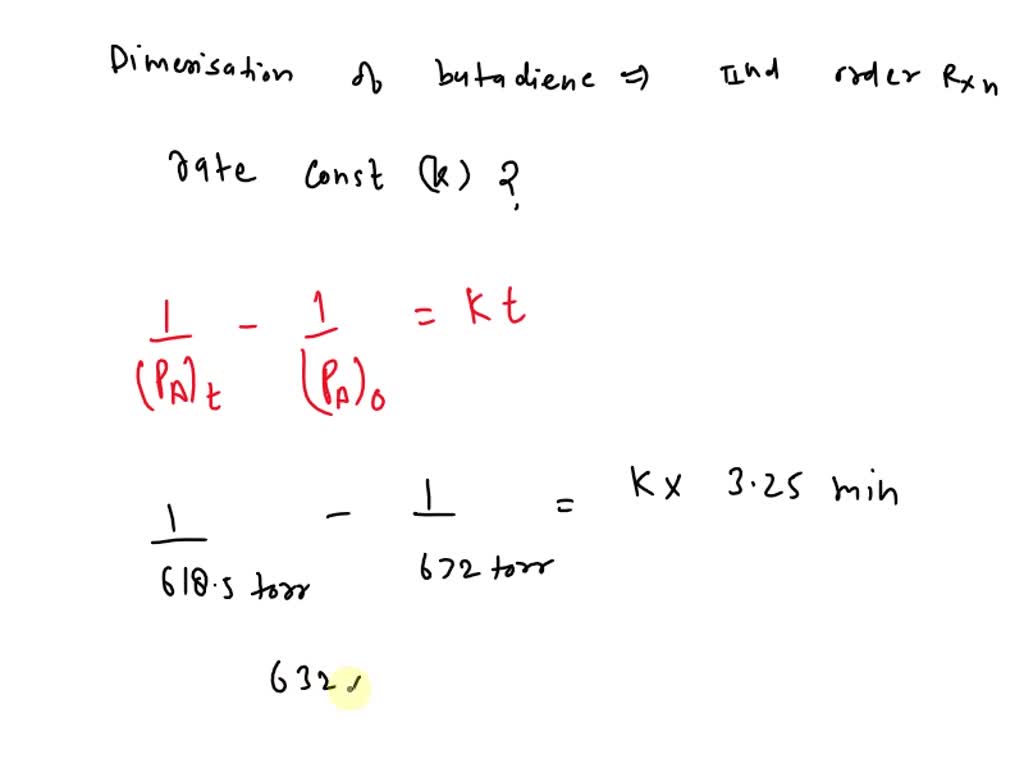 Dimerisation of butadiene ⇒ IInd order Rxn
rate const (k) ?
1/(PA)t - 1/(PA)0 = Kt
1/618.5 torr - 1/672 torr = K x 3.25 min
632.